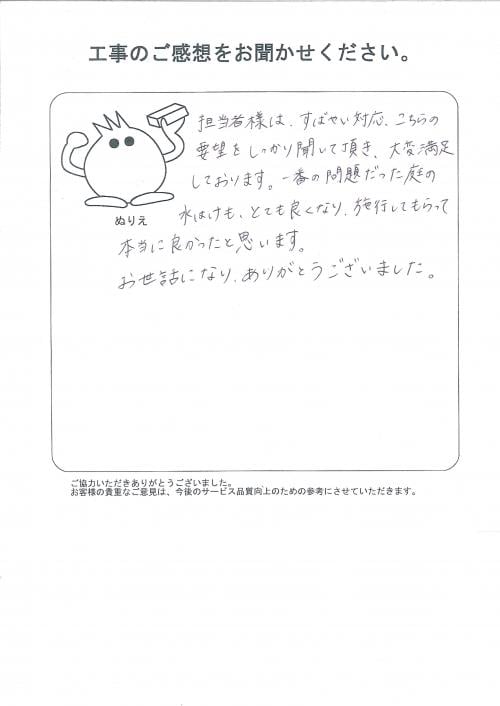 工事のご感想をお聞かせください。
担当者様は、すばやい対応、こちらの
要望をしっかり聞いて頂き、大変満足
しております。一番の問題だった庭の
水はけも、とても良くなり、施行してもらって
本当に良かったと思います。
お世話になり、ありがとうございました。
ぬりえ
ご協力いただきありがとうございました。
お客様の貴重なご意見は、今後のサービス品質向上のための参考にさせていただきます。